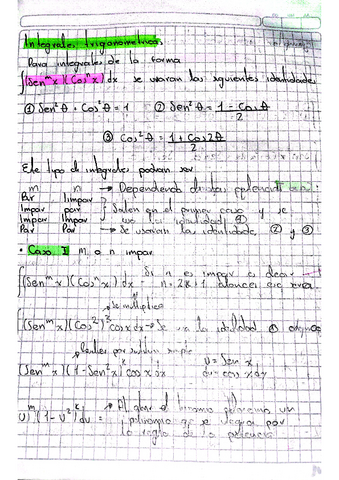 Integrales trigonometricas
Para integrales de la forma
∫(Sen^m x)(Cos^n x) dx se usaran las siguientes identidades
① Sen²θ + Cos²θ = 1 ② Sen²θ = 1 - Cosθ / 2
③ Cos²θ = 1 + Cos2θ / 2
Este tipo de integrales podran ser
m n → Dependiendo de las potencias
Par Impar
Impar par } Salen en el primer caso y se
Impar Impar usa identidad ①
Par Par → Se usaran la identidades ② y ③
• Caso I m o n impar
∫(Sen^m x)(Cos^n x) dx Si n es impar es decir
n = 2k+1 entonces
→ Se multiplica
∫(Sen^m x)(Cos²)^k cos x dx → Se usa la identidad ①
por sustitucion simple U = Sen x
(Sen^m x)(1 - Sen²x)^k cos x dx du = cos x dx
U^m (1 - U²)^k du = → Al abrir el binomio un
polinomio q se integra por
la regla de la potencia